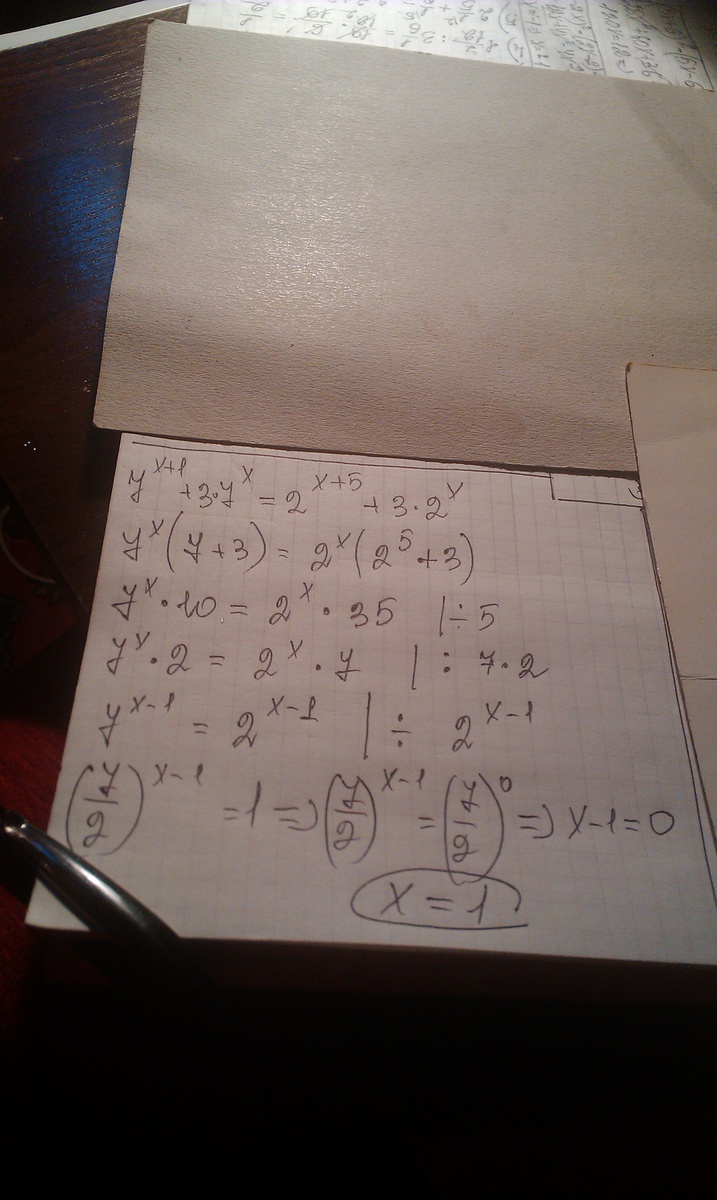 7^{x+1} + 3·7^x = 2^{x+5} + 3·2^x
7^x (7+3) = 2^x (2^5 + 3)
7^x · 10 = 2^x · 35 | ÷ 5
7^x · 2 = 2^x · 7 | : 7·2
7^{x-1} = 2^{x-1} | ÷ 2^{x-1}
(7/2)^{x-1} = 1 => (7/2)^{x-1} = (7/2)^0 => x-1=0
x = 1